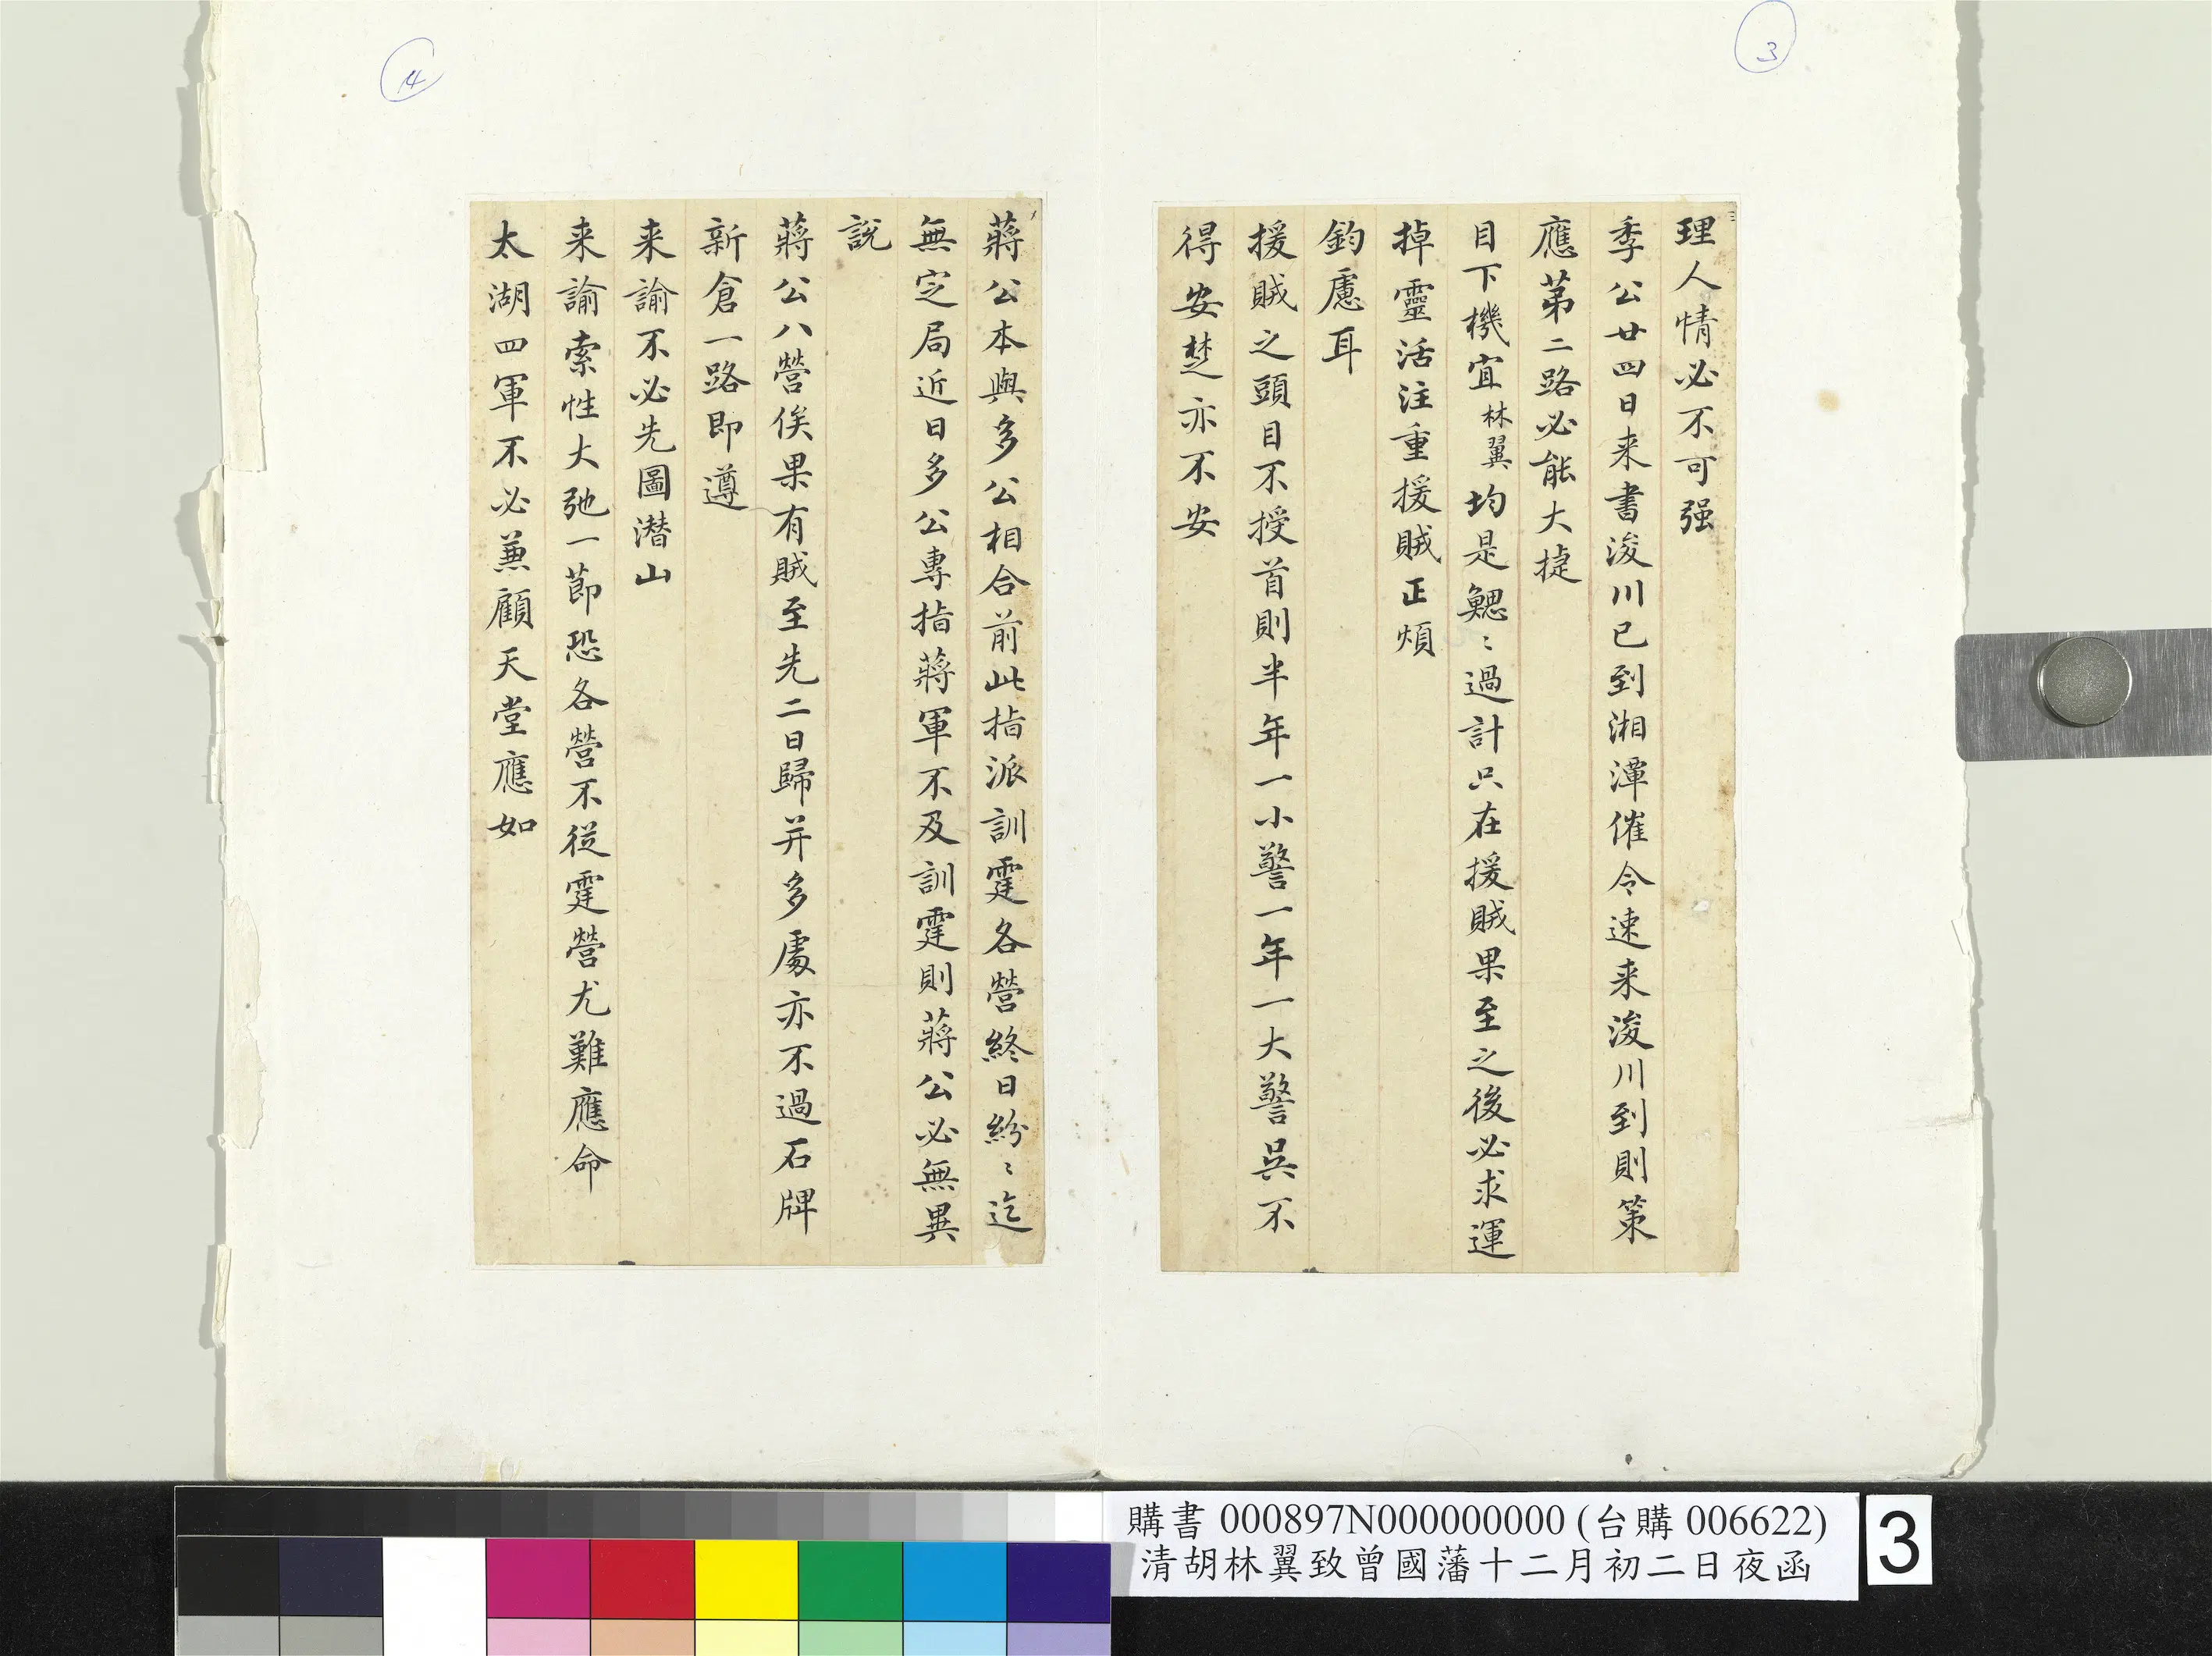 3
理人情必不可强
季公廿四日来書浚川已到湘潭催令速来浚川到則策
應第二路必能大捷
目下機宜林翼均是鰓〻過計只在援賊果至之後必求運
掉靈活注重援賊正煩
鈞慮耳
援賊之頭目不授首則半年一小警一年一大警吳不
得安楚亦不安
4
蔣公本與多公相合前此指派訓霆各營終日紛〻迄
無定局近日多公專指蔣軍不及訓霆則蔣公必無異
說
蔣公八營俟果有賊至先二日歸并多處亦不過石牌
新倉一路即遵
来諭不必先圖潛山
来諭索性大弛一節恐各營不從霆營尤難應命
太湖四軍不必兼顧天堂應如
購書 000897N000000000 (台購 006622)
清胡林翼致曾國藩十二月初二日夜函
3